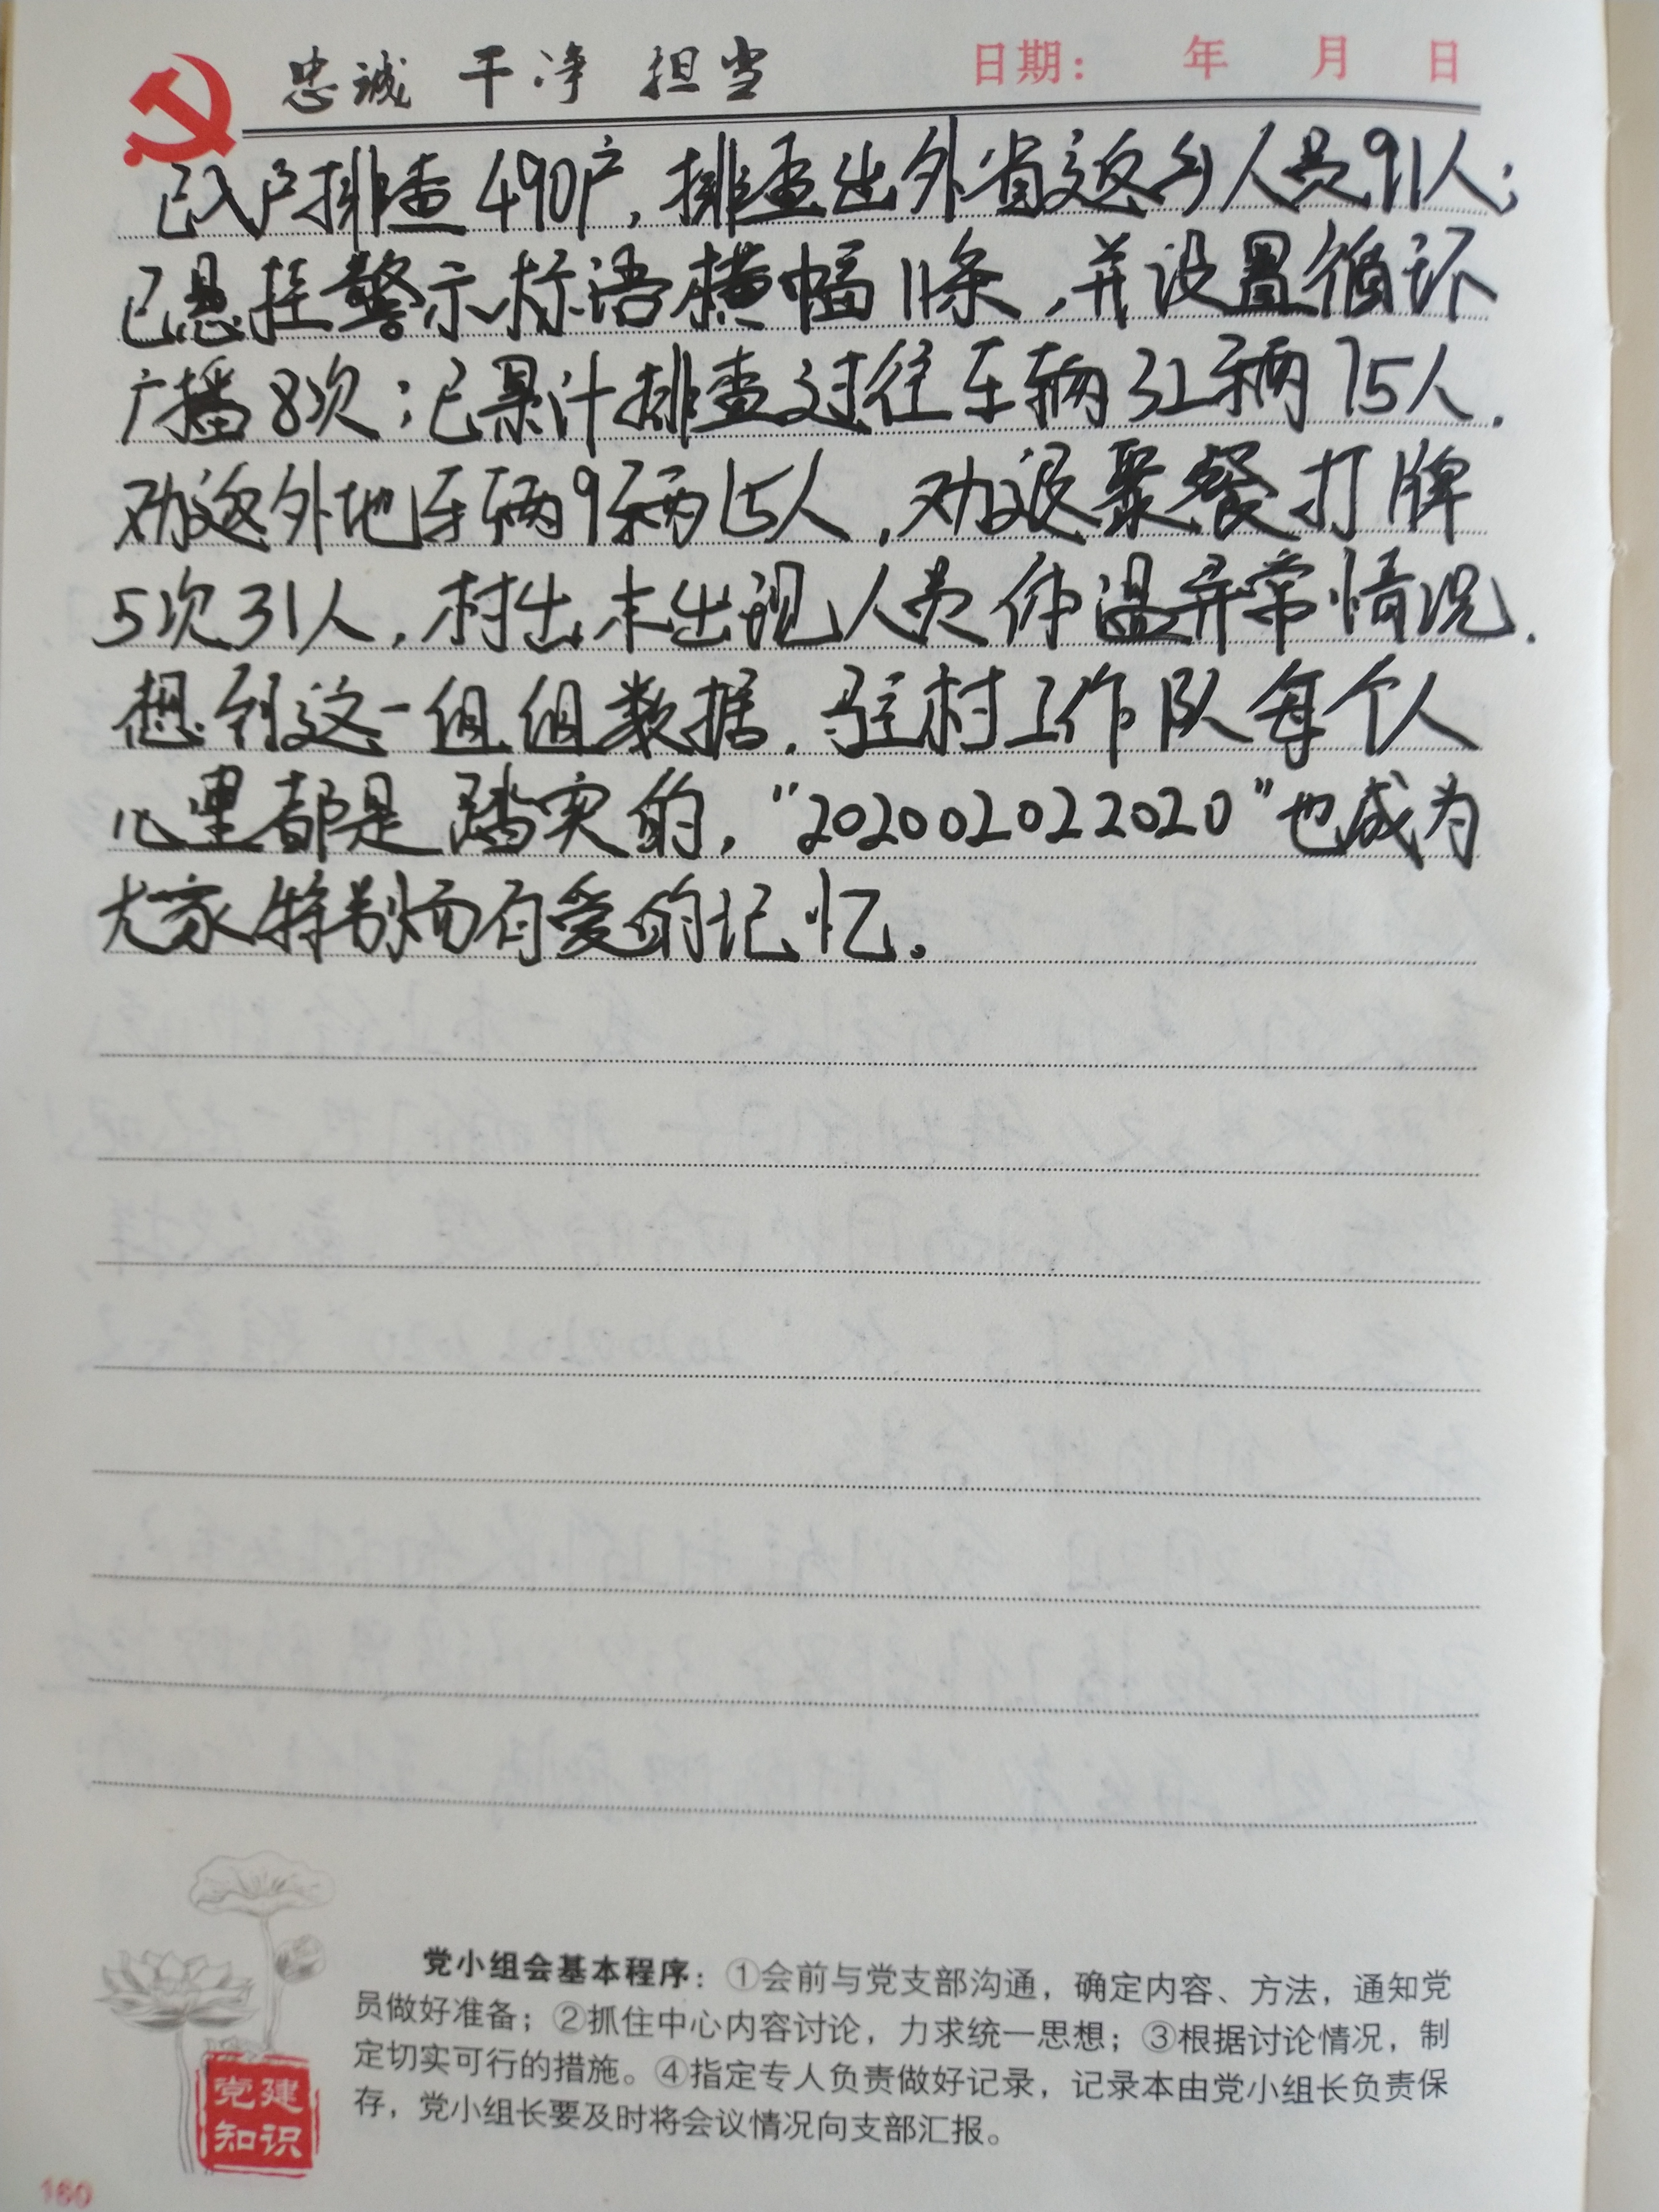 忠诚 干净 担当
日期： 年 月 日
已入户排查490户，排查出外省返乡人员91人；
已悬挂警示标语横幅11条，并设置循环
广播8次；已累计排查过往车辆32辆75人.
劝返外地车辆9辆15人，劝退聚餐打牌
5次31人，村出未出现人员体温异常情况.
想到这一组组数据，驻村工作队每个人
心里都是踏实的，"202002022020"也成为
大家特别而有爱的记忆。
党小组会基本程序：①会前与党支部沟通，确定内容、方法，通知党
员做好准备；②抓住中心内容讨论，力求统一思想；③根据讨论情况，制
定切实可行的措施。④指定专人负责做好记录，记录本由党小组长负责保
存，党小组长要及时将会议情况向支部汇报。
党建
知识
160